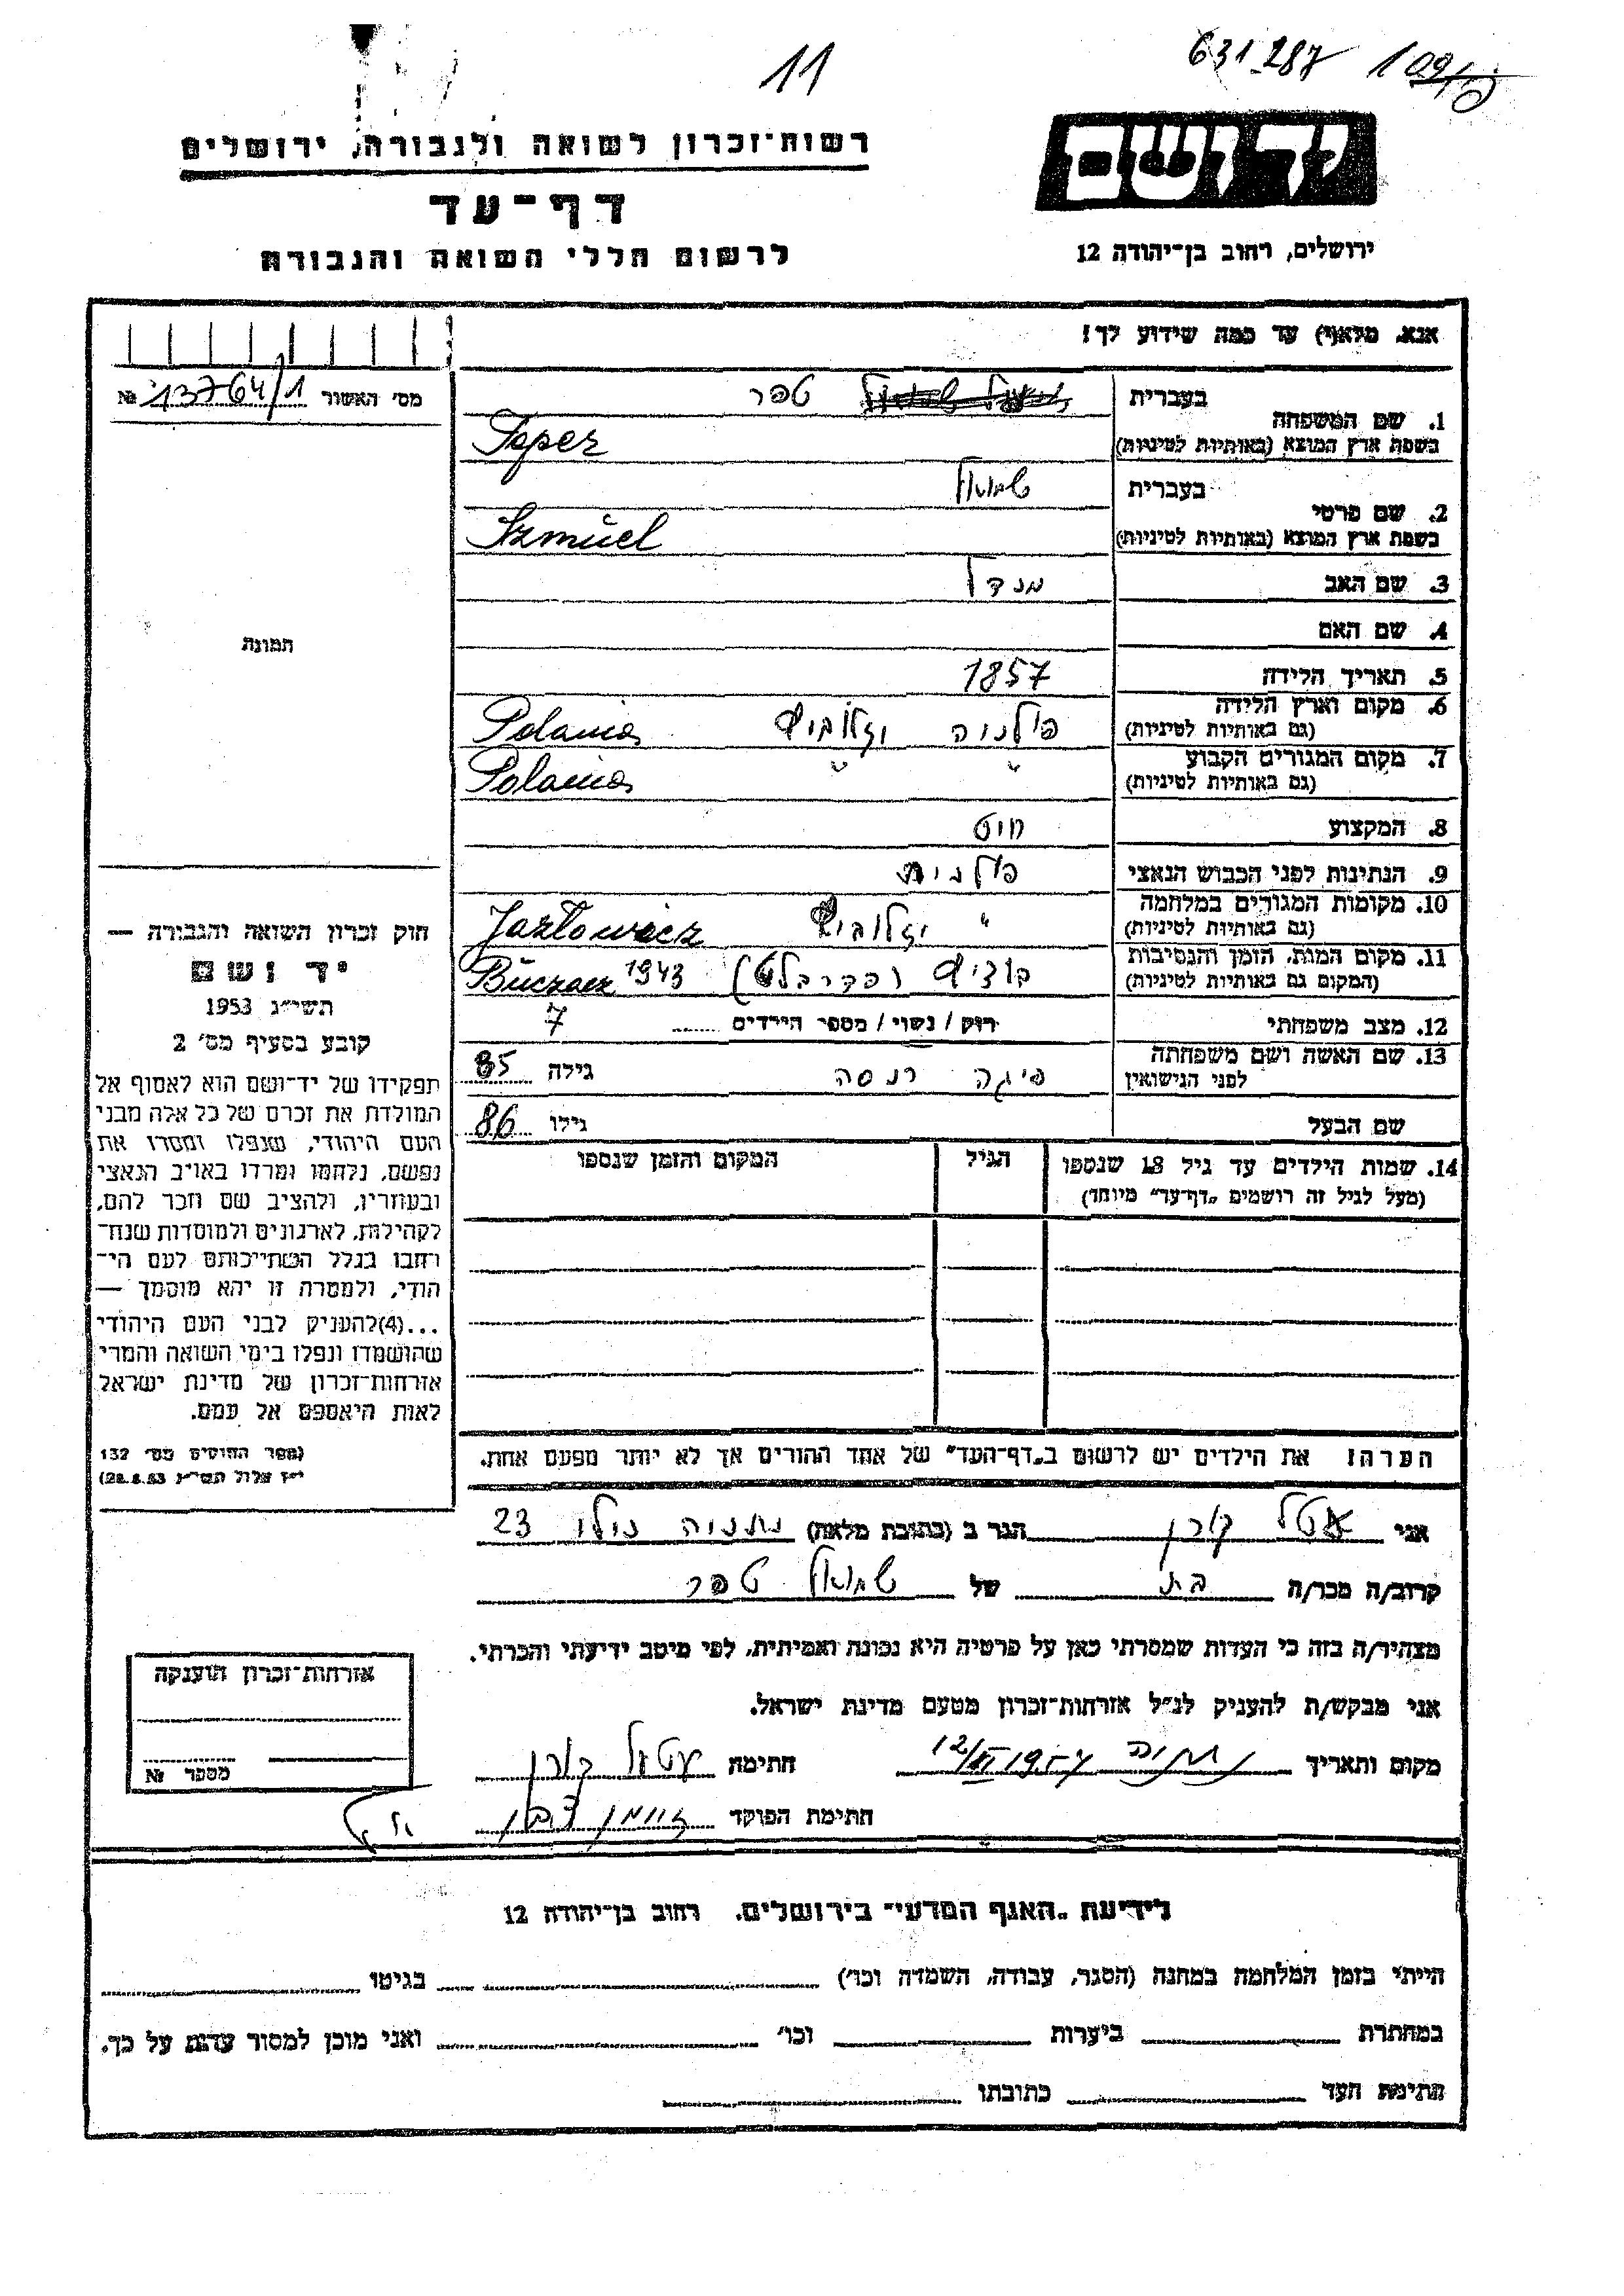 11
631287 109/
רשות־זכרון לשואה ולגבורה, ירושלים
דף־עד
לרשום חללי השואה והגבורה
יד ושם
ירושלים, רחוב בן־יהודה 12
אנא, מלא(י) עד כמה שידוע לך!
מס׳ האשור 13764/1 №
1. שם המשפחה
בעברית טפר
בשפת ארץ המוצא (באותיות לטיניות) Teper
2. שם פרטי
בעברית שמואל
בשפת ארץ המוצא (באותיות לטיניות) Szmuel
3. שם האב מנדל
4. שם האם
5. תאריך הלידה 1857
6. מקום וארץ הלידה פולניה Polania
(גם באותיות לטיניות)
7. מקום המגורים הקבוע " " Polania
(גם באותיות לטיניות)
8. המקצוע חיט
9. הנתינות לפני הכבוש הנאצי פולנית
10. מקומות המגורים במלחמה " Jazlowiecz
(גם באותיות לטיניות)
11. מקום המות, הזמן והנסיבות 1943 Buczacz
(המקום גם באותיות לטיניות)
12. מצב משפחתי רווק / נשוי / מספר הילדים 7
13. שם האשה ושם משפחתה פיגה גילה 85
לפני הנישואין
שם הבעל גילו 86
14. שמות הילדים עד גיל 18 שנספו הגיל המקום והזמן שנספו
(מעל לגיל זה רושמים „דף־עד" מיוחד)
הערה: את הילדים יש לרשום ב„דף־העד" של אחד ההורים אך לא יותר מפעם אחת.
תמונה
חוק זכרון השואה והגבורה —
יד ושם
תשי״ג 1953
קובע בסעיף מס׳ 2
תפקידו של יד־ושם הוא לאסוף אל
המולדת את זכרם של כל אלה מבני
העם היהודי, שנפלו ומסרו את
נפשם, נלחמו ומרדו באויב הנאצי
ובעוזריו, ולהציב שם וזכר להם,
לקהילות, לארגונים ולמוסדות שנח־
רבו בגלל השתייכותם לעם הי־
הודי, ולמטרה זו יהא מוסמך —
...(4) להעניק לבני העם היהודי
שהושמדו ונפלו בימי השואה והמרי
אזרחות־זכרון של מדינת ישראל
לאות היאספם אל עמם.
(ספר החוקים מס׳ 132
י״ז אלול תשי״ג 28.8.53)
אני אטל קורן הגר ב (כתובת מלאה) נתניה 23
קרוב/ה מכר/ה בת של שמואל טפר
מצהיר/ה בזה כי העדות שמסרתי כאן על פרטיה היא נכונה ואמיתית, לפי מיטב ידיעתי והכרתי.
אני מבקש/ת להעניק לנ״ל אזרחות־זכרון מטעם מדינת ישראל.
מקום ותאריך נתניה חתימה
חתימת הפוקד
אזרחות־זכרון הוענקה
מספר №
לידיעת „האגף המדעי" בירושלים, רחוב בן־יהודה 12
הייתי בזמן המלחמה במחנה (הסגר, עבודה, השמדה וכו׳) בגיטו
במחתרת ביערות וכו׳ ואני מוכן למסור עדות על כך.
חתימת העד כתובתו